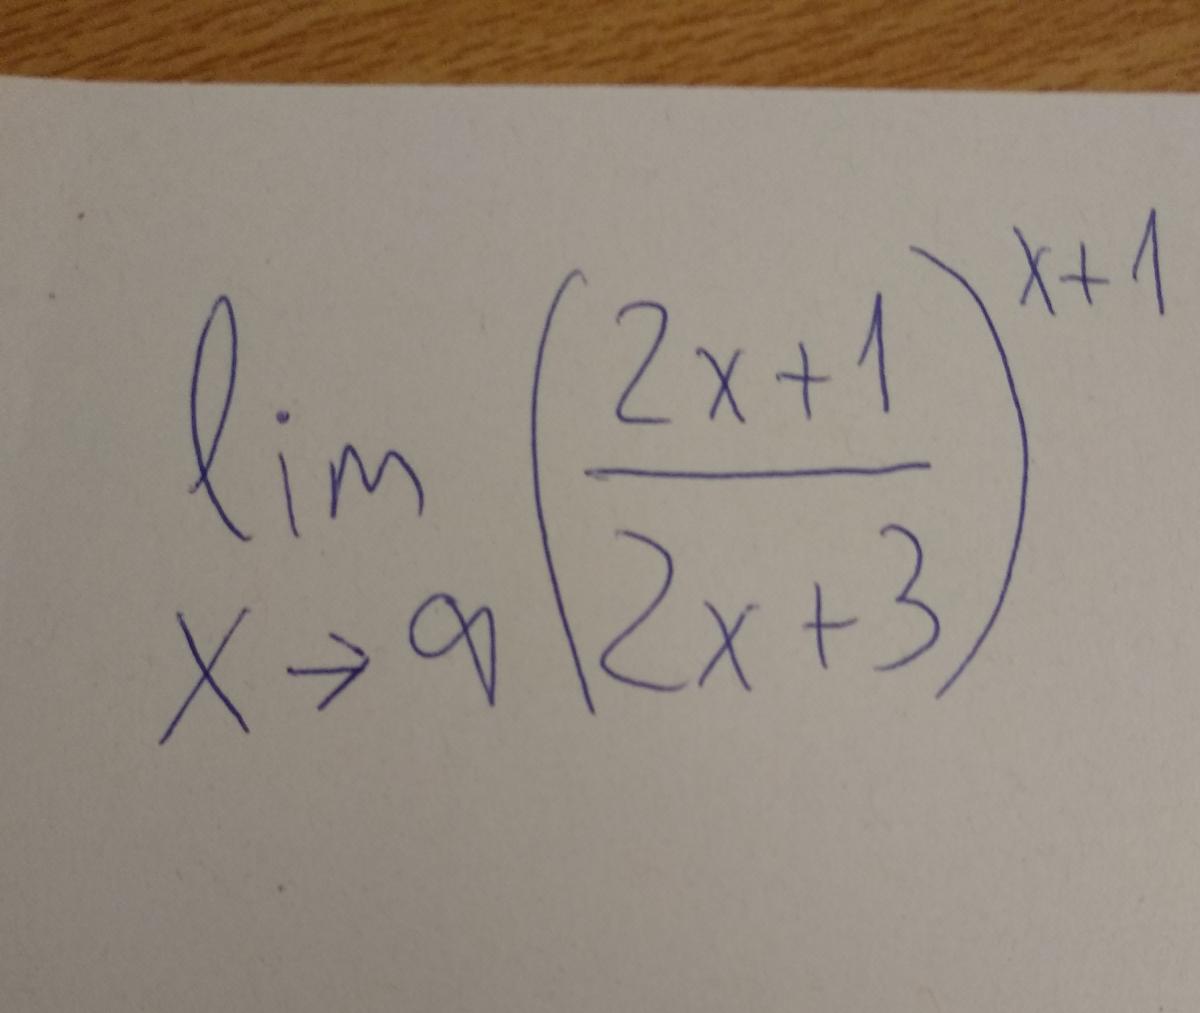 lim x→∞ ((2x+1)/(2x+3))^(x+1)